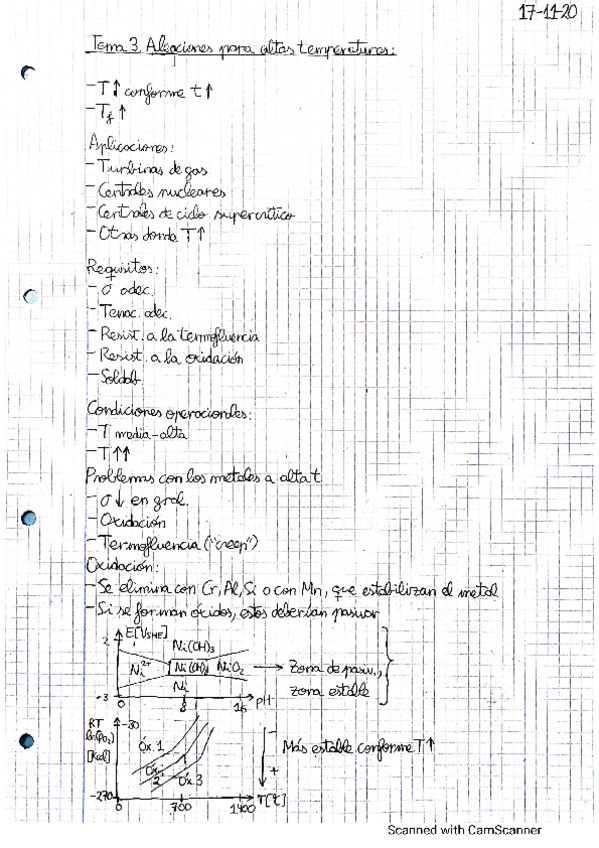 17-11-20
Tema 3. Aleaciones para altas temperaturas:
- T↑ conforme t↑
- Tf ↑
Aplicaciones:
- Turbinas de gas
- Centrales nucleares
- Centrales de ciclo supercrítico
- Otras donde T↑
Requisitos:
- σ adec.
- Tenac. adec.
- Resist. a la termofluencia
- Resist. a la oxidación
- Soldab.
Condiciones operacionales:
- T media-alta
- T↑↑
Problemas con los metales a alta t
- σ↓ en gral.
- Oxidación
- Termofluencia ("creep")
Oxidación:
- Se elimina con Cr, Al, Si o con Mn, que estabilizan el metal
- Si se forman óxidos, estos deberían pasivar
E[VSHE]
2
Ni(OH)3
Ni2+ Ni(OH)2 NiO2 → Zona de pasiv.,
Ni zona estable
-3 0 8 16 pH
RT ln(pO2) [kcal]
-30
Óx. 1
Óx. 2
Óx. 3
- Más estable conforme T↑
+
-270
0 700 1400 T[ºC]
Scanned with CamScanner